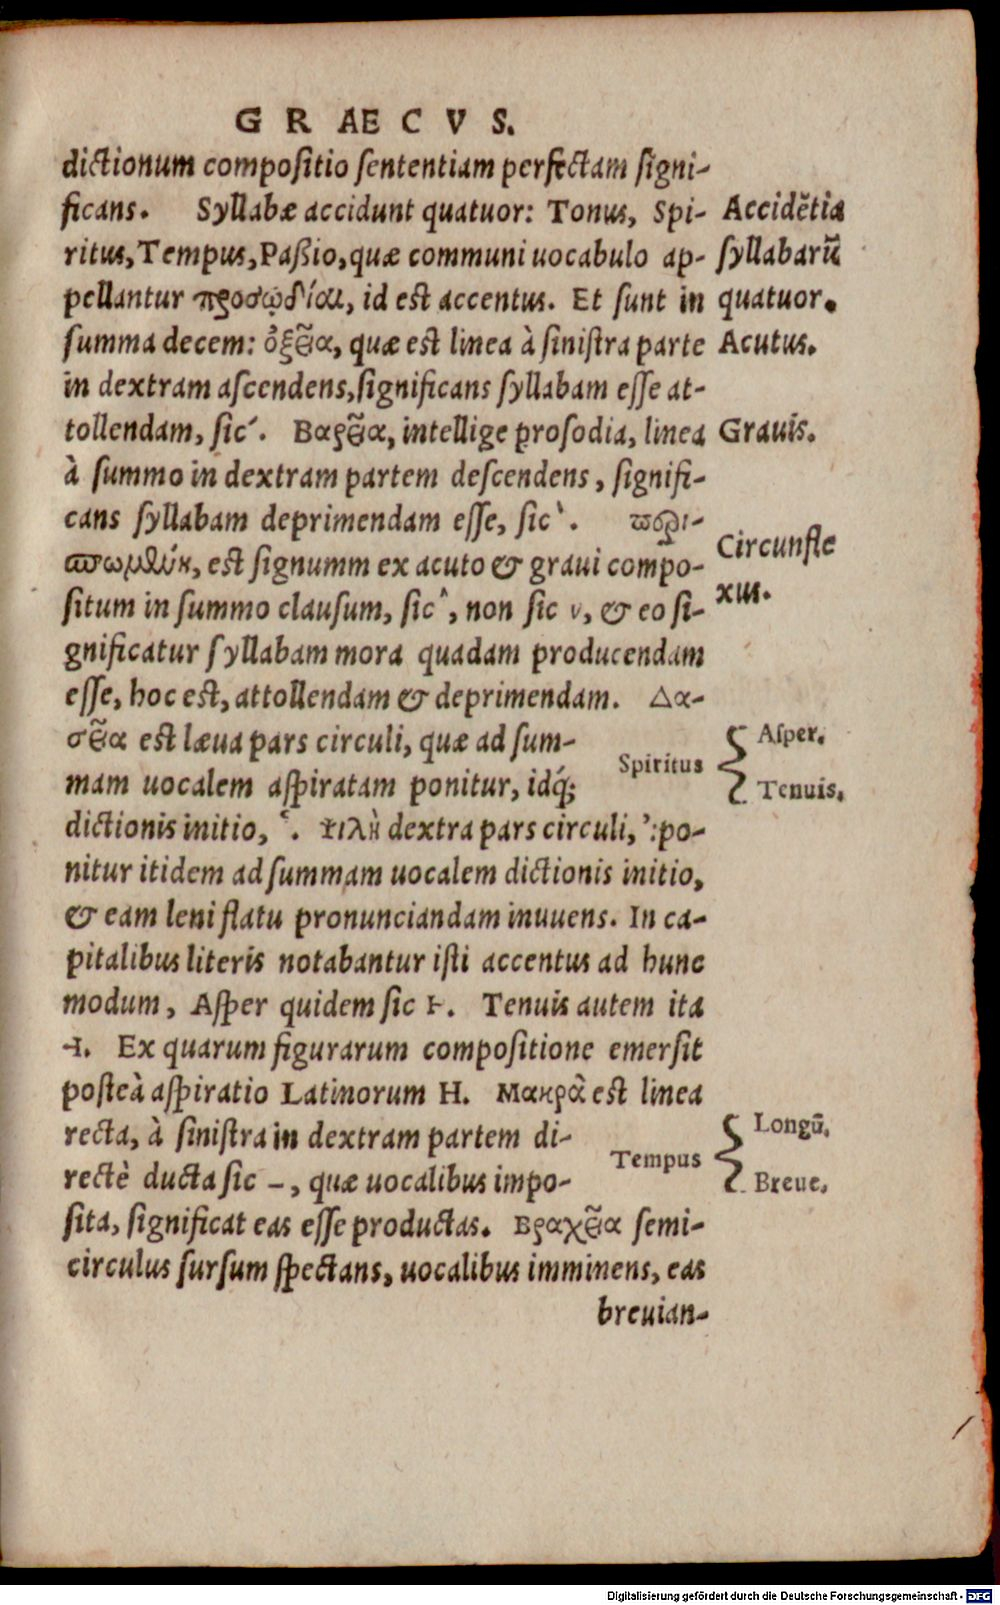 GRAECVS.
dictionum compositio sententiam perfectam signi-
ficans. Syllabæ accidunt quatuor: Tonus, Spi-
Accidẽtia
ritus, Tempus, Paßio, quæ communi uocabulo ap-
syllabarũ
pellantur προσῳδίαι, id est accentus. Et sunt in
quatuor.
summa decem: ὀξεῖα, quæ est linea à sinistra parte
Acutus.
in dextram ascendens, significans syllabam esse at-
tollendam, sic ´. Βαρεῖα, intellige prosodia, linea
Grauis.
à summo in dextram partem descendens, signifi-
cans syllabam deprimendam esse, sic `. περι-
Circunfle
σπωμένη, est signumm ex acuto & graui compo-
xus.
situm in summo clausum, sic ^, non sic v, & eo si-
gnificatur syllabam mora quadam producendam
esse, hoc est, attollendam & deprimendam. Δα-
σεῖα est læua pars circuli, quæ ad sum-
Spiritus { Asper.
Tenuis.
mam uocalem aspiratam ponitur, idq́;
dictionis initio, ῾. ψιλὴ dextra pars circuli, ᾿: po-
nitur itidem ad summam uocalem dictionis initio,
& eam leni flatu pronunciandam inuuens. In ca-
pitalibus literis notabantur isti accentus ad hunc
modum, Asper quidem sic Ⱶ. Tenuis autem ita
˧. Ex quarum figurarum compositione emersit
posteà aspiratio Latinorum H. Μακρὰ est linea
recta, à sinistra in dextram partem di-
Tempus { Longũ.
Breue.
rectè ducta sic –, quæ uocalibus impo-
sita, significat eas esse productas. Βραχεῖα semi-
circulus sursum spectans, uocalibus imminens, eas
breuian-
Digitalisierung gefördert durch die Deutsche Forschungsgemeinschaft - DFG